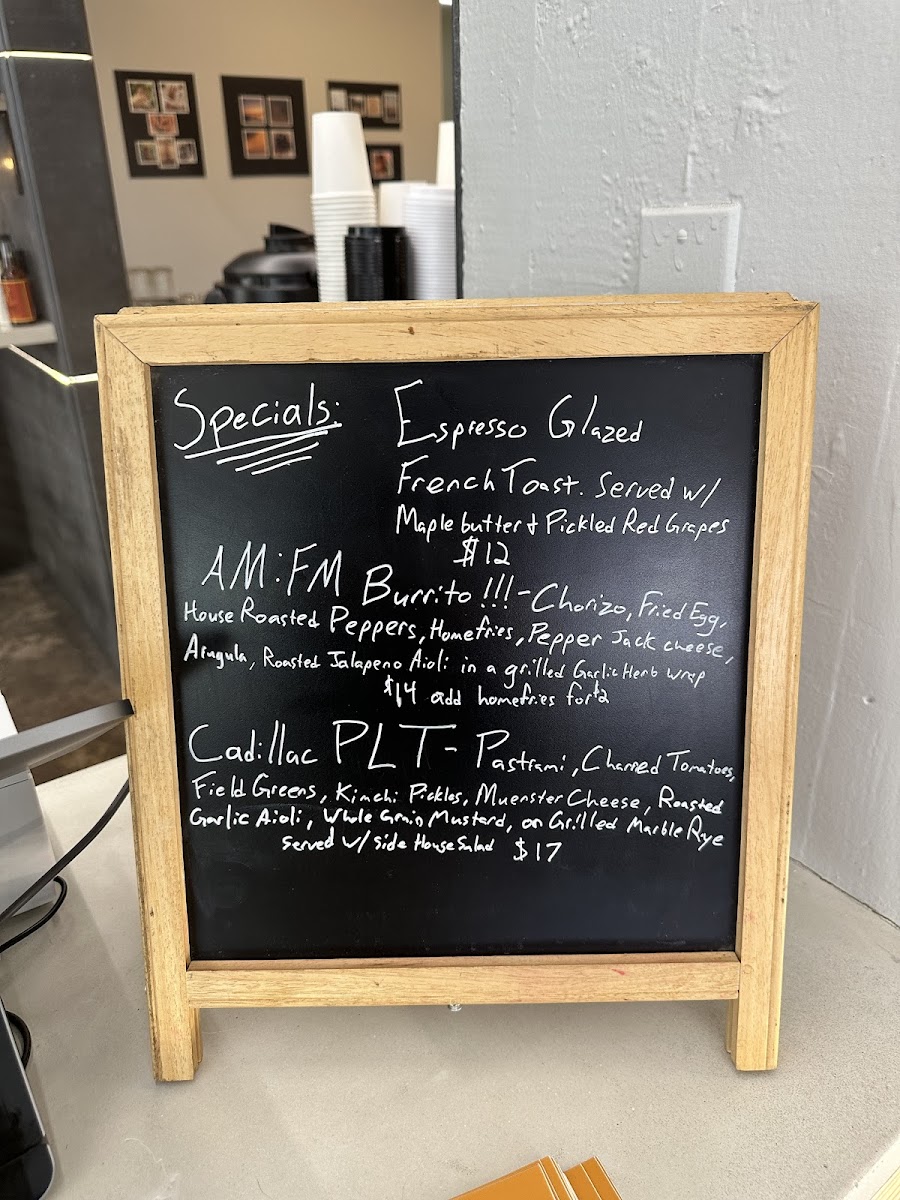 Specials:
Espresso Glazed
French Toast. Served w/
Maple butter + Pickled Red Grapes
$12
AM:FM Burrito!!! - Chorizo, Fried Egg,
House Roasted Peppers, Homefries, Pepper Jack cheese,
Arugula, Roasted Jalapeno Aioli in a grilled Garlic Herb wrap
$14 add homefries for $2
Cadillac PLT - Pastrami, Charred Tomatoes,
Field Greens, Kimchi Pickles, Muenster Cheese, Roasted
Garlic Aioli, Whole Grain Mustard, on Grilled Marble Rye
Served w/ side House Salad $17